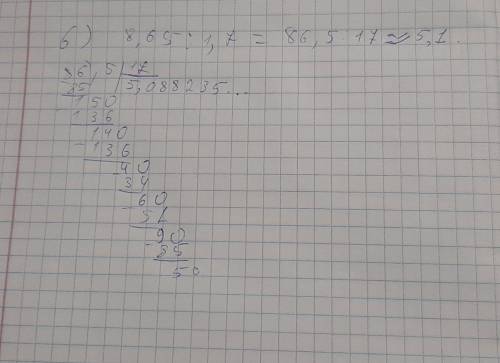 б) 8,65 : 1,7 = 86,5 : 17 ≈ 5,1.
86,5 | 17
85 | 5,088235...
150
136
140
136
40
34
60
51
90
85
50